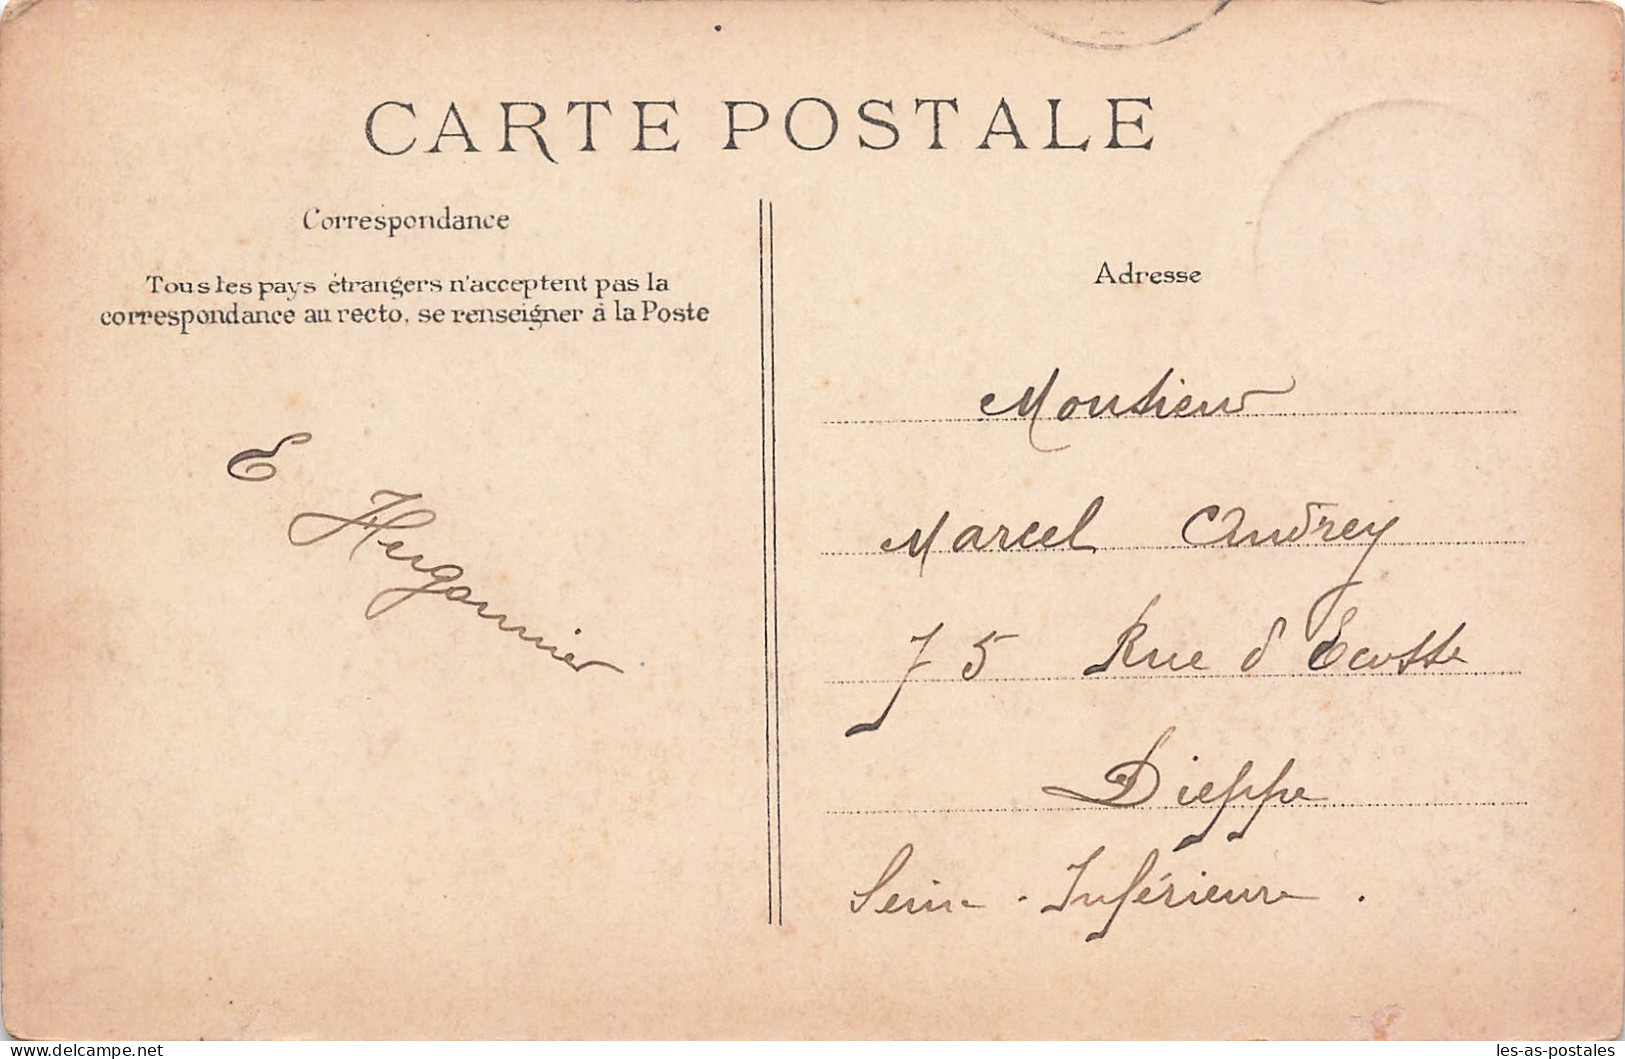 CARTE POSTALE
Correspondance
Tous les pays étrangers n'acceptent pas la
correspondance au recto, se renseigner à la Poste
E
Adresse
Monsieur
Marcel Audrey
75 Rue d'Ecosse
Dieppe
Seine-Inférieure.
Verso
les-as-postales